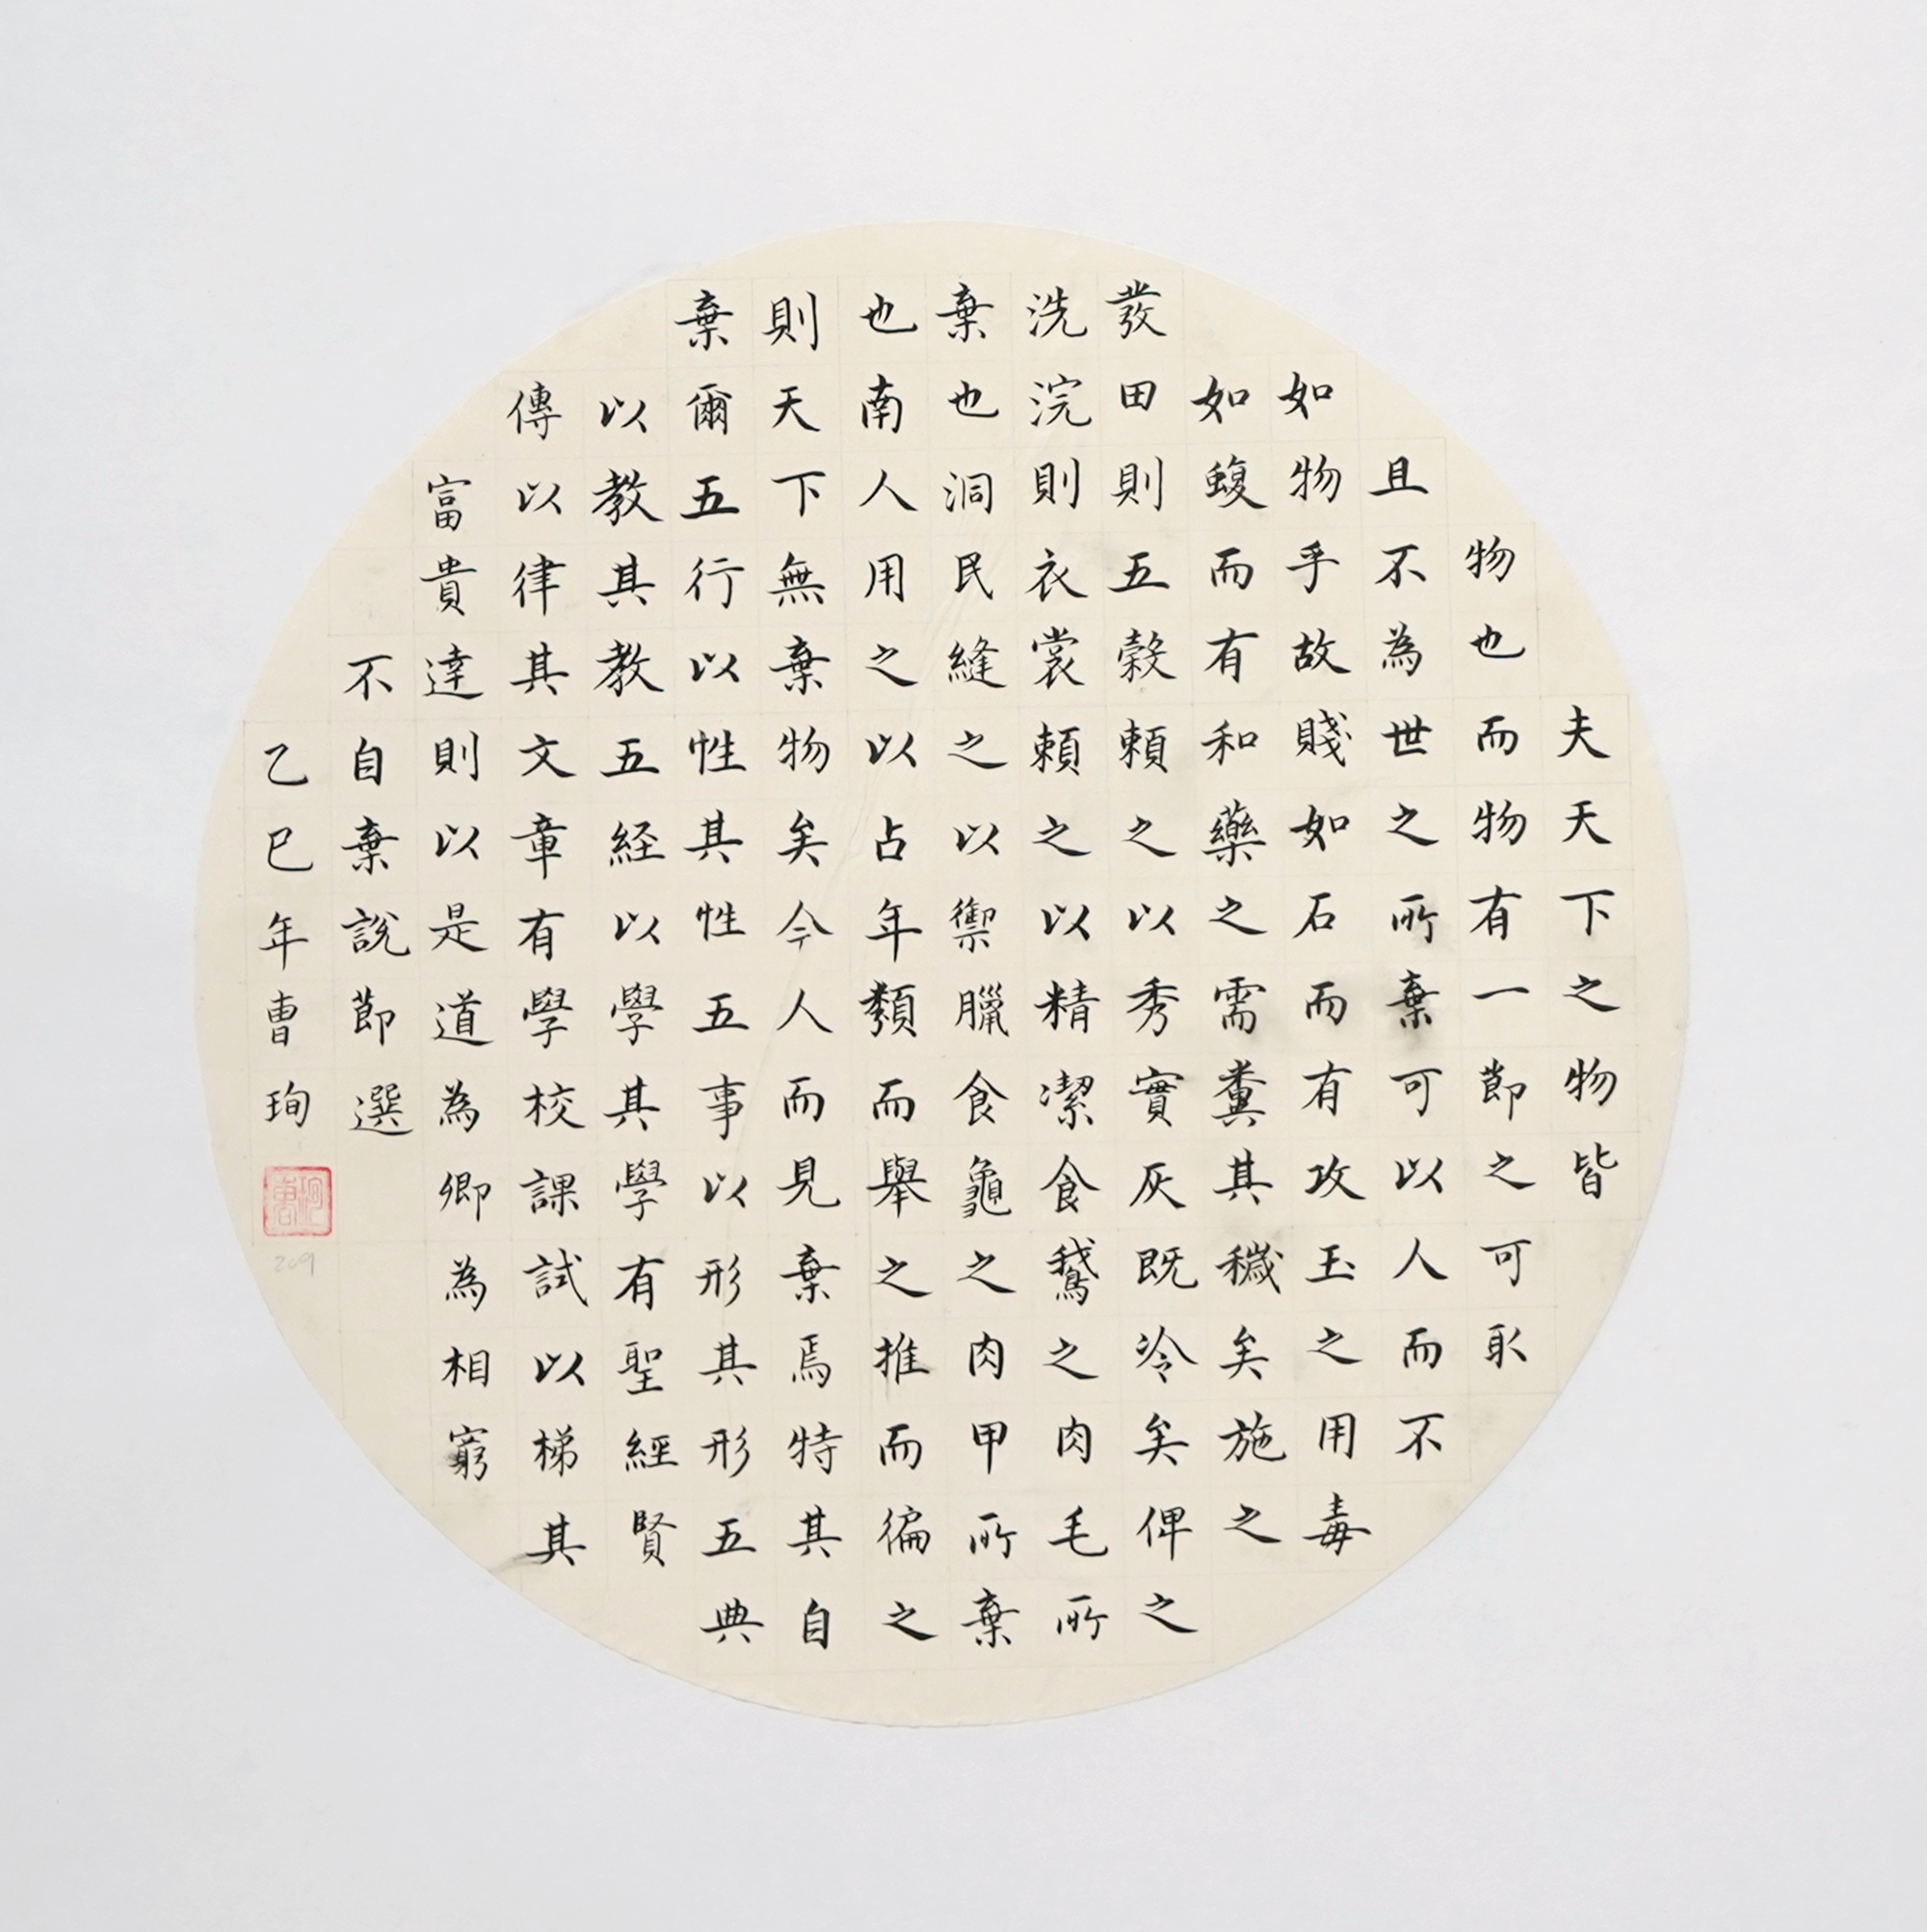 夫天下之物皆
物也而物有一節之可取
且不為世之所棄可以人而不
如物乎故賤如石而有攻玉之用毒
如蝮而有和藥之需糞其穢矣施之
發田則五穀賴之以秀實灰既冷矣俾之
洗浣則衣裳賴之以精潔食鵝之肉毛所
棄也洞民縫之以禦臘食龜之肉甲所棄
也南人用之以占年類而舉之推而徧之
則天下無棄物矣今人而見棄焉特其自
棄爾五行以性其性五事以形其形五典
以教其教五経以學其學有聖經賢
傳以律其文章有學校課試以梯其
富貴達則以是道為卿為相窮
不自棄說節選
乙巳年曹珣
209